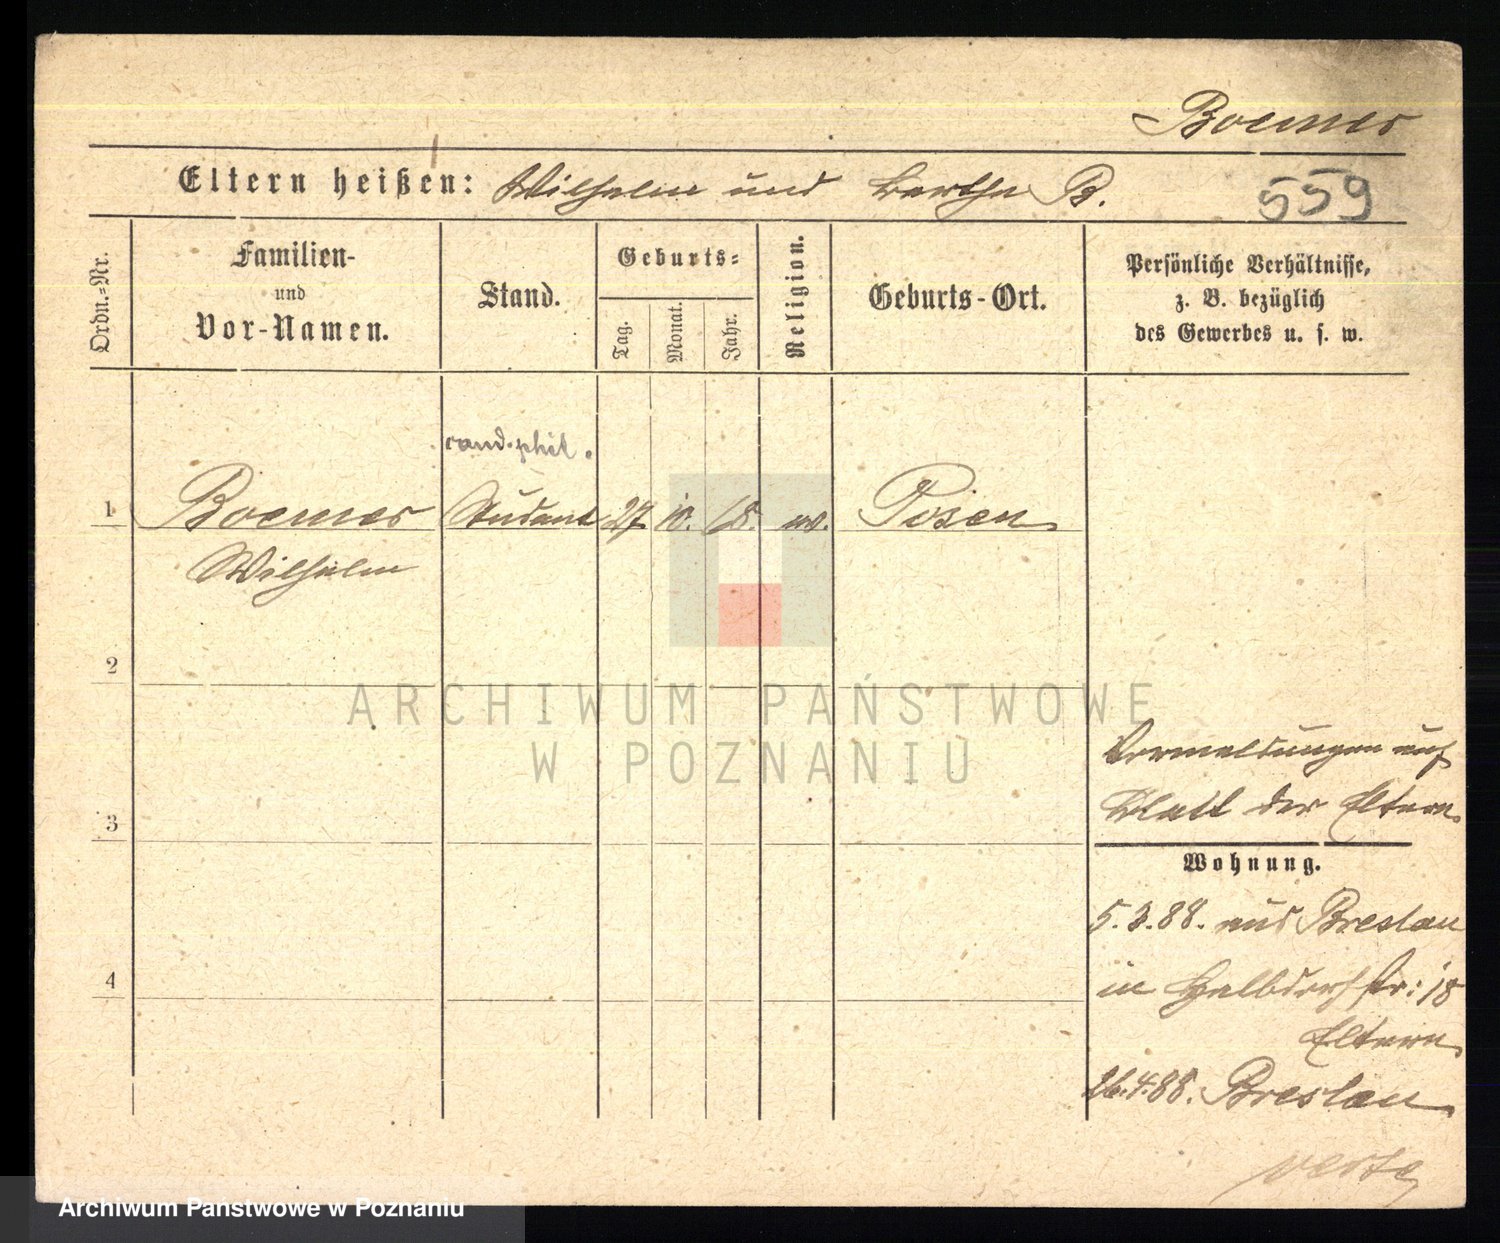 Boemer
Eltern heißen: Wilhelm und Bertha B.
559
Ordn.-Nr.
Familien-
und
Vor-Namen.
Stand.
Geburts-
Tag.
Monat.
Jahr.
Religion.
Geburts-Ort.
Persönliche Verhältnisse,
z. B. bezüglich
des Gewerbes u. s. w.
cand. phil.
1 Boemer Student 27 10. 68. Posen
Wilhelm
2
ARCHIWUM PAŃSTWOWE
W POZNANIU
Vormeldungen auf
Blatt der Eltern
3
Wohnung.
5.3.88. aus Breslau
4
in Halbdorfstr: 18
Eltern
26.4.88. Breslau.
verte
Archiwum Państwowe w Poznaniu